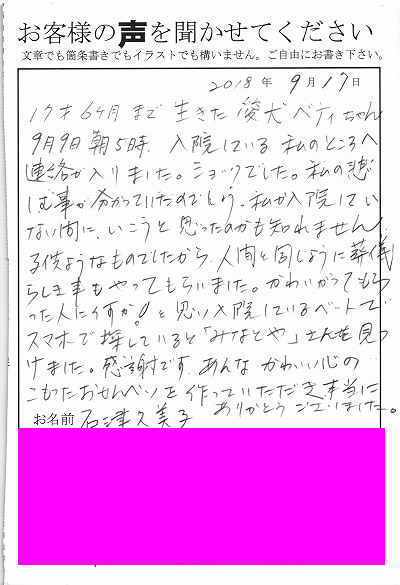 お客様の声を聞かせてください
文章でも箇条書きでもイラストでも構いません。ご自由にお書き下さい。
2018年 9月17日
17才6ヶ月まで生きた愛犬ベティちゃん
9月9日朝5時、入院している私のところへ
連絡が入りました。ショックでした。私の悲
しむ事が分かっていたのでしょう、私が入院してい
ない間に、いこうと思ったのかも知れません、
子供ようなものでしたから、人間と同じように葬儀
らしき事もやってもらいました。かわいがってもら
った人に何か!と思い入院しているベットで
スマホで探していると「みなとや」さんを見つ
けました。感謝です、あんなかわいい心の
こもったおせんべいを作っていただき本当に
ありがとうございました。
お名前 石津久美子